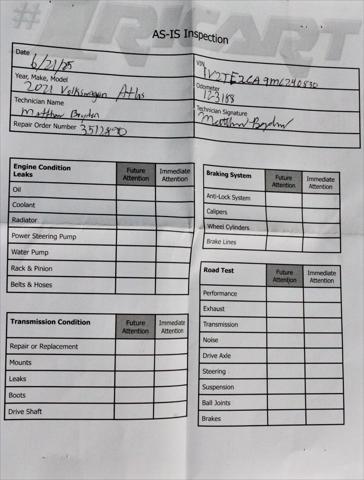 #1RKART
AS-IS Inspection
Date 6/21/25
VIN
Year, Make, Model 2021 Volkswagen Atlas
Odometer 123188
Technician Name Matthew
Technician Signature Matthew
Repair Order Number
Engine Condition
Leaks
Future Attention
Immediate Attention
Oil
Coolant
Radiator
Power Steering Pump
Water Pump
Rack & Pinion
Belts & Hoses
Transmission Condition
Future Attention
Immediate Attention
Repair or Replacement
Mounts
Leaks
Boots
Drive Shaft
Braking System
Future Attention
Immediate Attention
Anti-Lock System
Calipers
Wheel Cylinders
Brake Lines
Road Test
Future Attention
Immediate Attention
Performance
Exhaust
Transmission
Noise
Drive Axle
Steering
Suspension
Ball Joints
Brakes